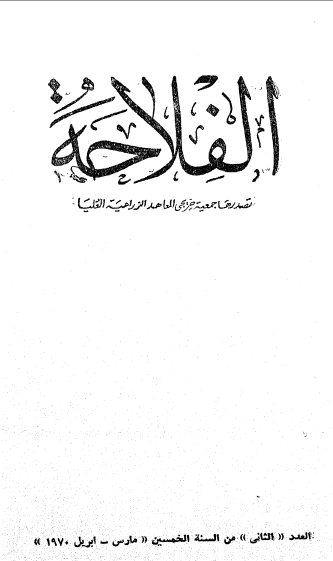 الفلاحة
تصدرها جمعية خريجى المعاهد الزراعية العليا
العدد « الثانى » من السنة الخمسين « مارس – ابريل ١٩٧٠ »